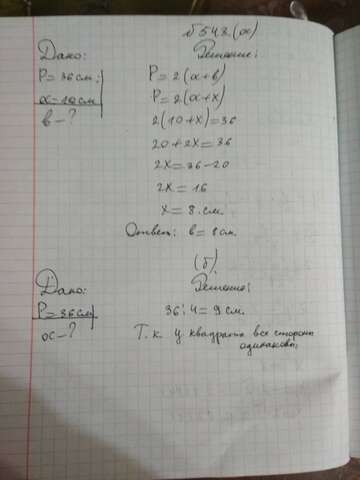 № 548. (а)
Дано:
Решение:
P = 36 см.
a = 10 см
в – ?
P = 2(a+в)
P = 2(a+x)
2(10+x)=36
20+2x=36
2x=36-20
2x=16
x=8.см.
Ответ: в=8 см.
(б)
Дано:
Решение:
P=36 см
a – ?
36:4=9 см.
Т.к. у квадрата все стороны
одинаковы,